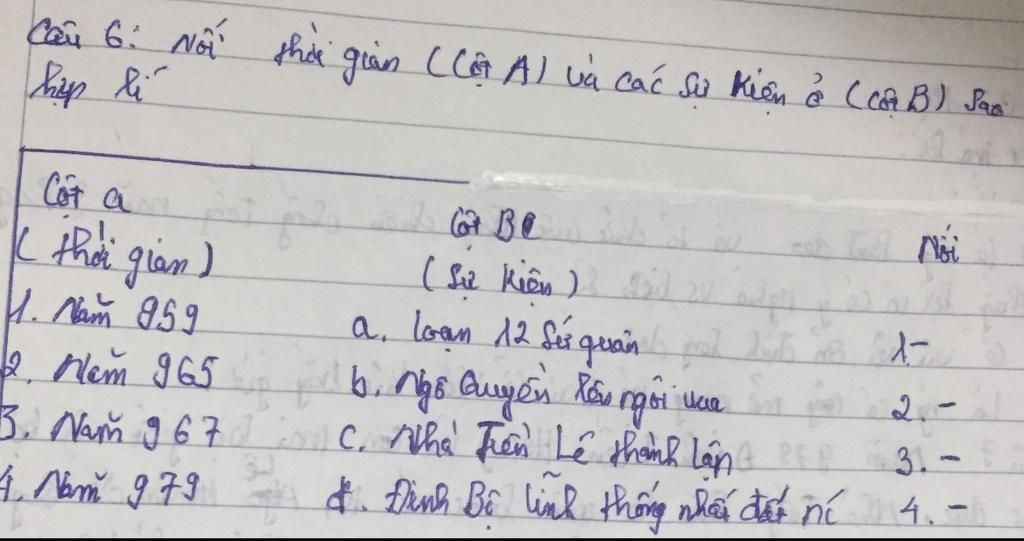 Câu 6: Nối thời gian (Cột A) và các sự kiện ở (cột B) sao
hợp lí
Cột a Cột B Nối
(thời gian) (sự kiện)
1. Năm 959 a. loạn 12 sứ quân 1-
2. Năm 965 b. Ngô Quyền lên ngôi vua 2.-
3. Năm 967 c. Nhà Tiền Lê thành lập 3.-
4. Năm 979 d. Đinh Bộ lĩnh thống nhất đất nc 4.-